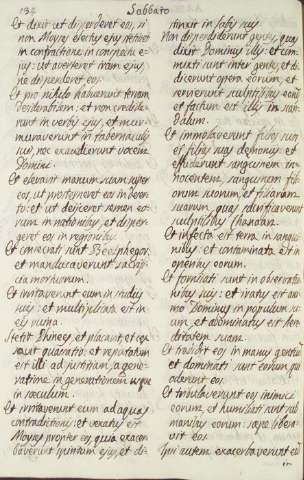 132
Sabbato
Et dixit ut disperderet eos, si
non Moyses electus ejus stetisset
in confractione in conspectu e-
jus: ut averteret iram ejus,
ne disperderet eos.
Et pro nihilo habuerunt terram
desiderabilem: et non credide-
runt in verbis ejus, et mur-
muraverunt in tabernaculis
suis, non exaudierunt vocem
Domini.
Et elevavit manum suam super
eos, ut prosterneret eos in deser-
to: et ut dejiceret semen eo-
rum in nationibus, et disper-
geret eos in regionibus.
Et comecrati sunt Beelphegor,
et manducaverunt sacrifi-
cia mortuorum.
Et irritaverunt eum in studiis
suis: et multiplicata est in
eis ruina.
Stetit Phinees, et placavit, et ces-
savit quassatio: et reputatum
est illi ad justitiam, a gene-
ratione in generationem usque
in sæculum.
Et irritaverunt eum ad aquas
contradictionis: et vexatus est
Moyses propter eos, quia exacer-
baverunt spiritum ejus, et di-
stinxit in labiis suis
Non disperdiderunt gentes, quas
dixit Dominus illis: et com-
mixti sunt inter gentes, et di-
dicerunt opera eorum, et
servierunt sculptilibus eorum
et factum est illis in scan-
dalum.
Et immolaverunt filios suos,
et filias suas demoniis et
effuderunt sanguinem in-
nocentem, sanguinem fili-
orum suorum, et filiarum
suarum, quas sacrificaverunt
sculptilibus Chanaan.
Et infecta est terra in sangui-
nibus, et contaminata est in
operibus eorum.
Et fornicati sunt in observatio-
nibus suis: et iratus est ani-
mo Dominus in populum su-
um, et abominatus est here-
ditatem suam.
Et tradidit eos in manus gentium
et dominati sunt eorum qui
oderunt eos.
Et tribulaverunt eos inimici
eorum, et humiliati sunt sub
manibus eorum: sæpe libera-
vit eos.
Ipsi autem exacerbaverunt eum
in